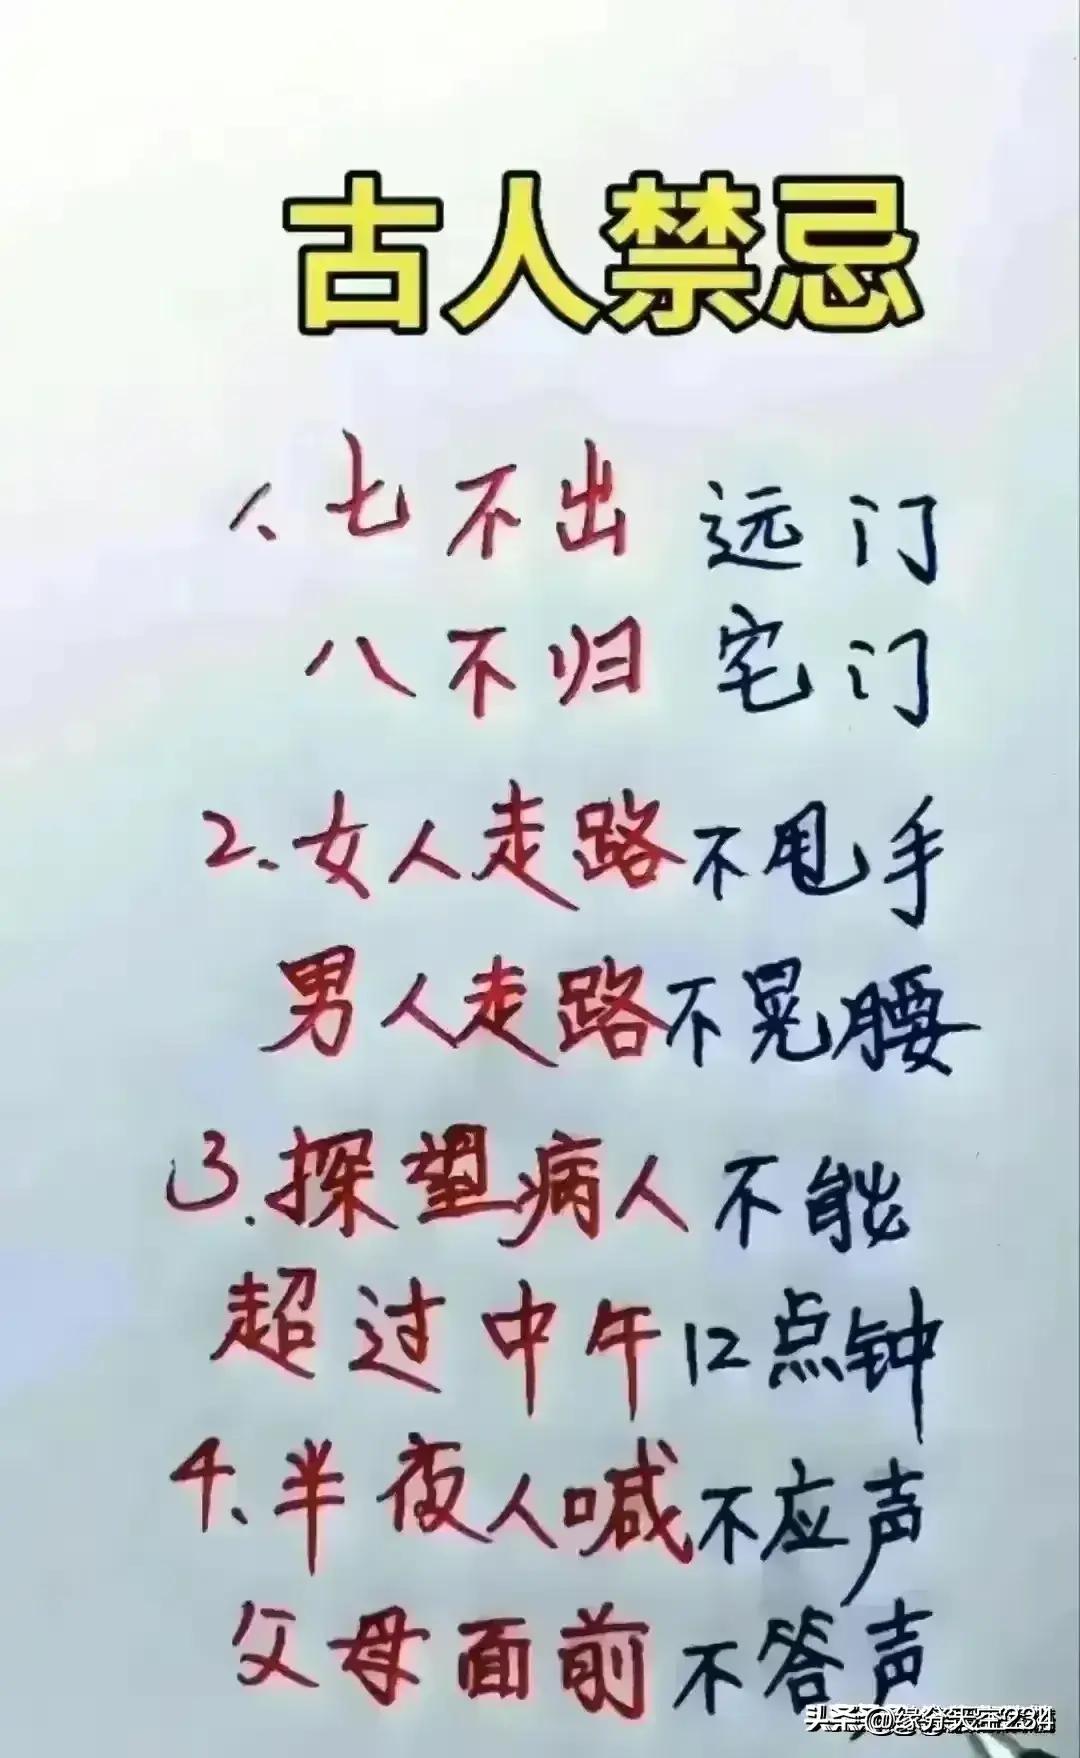 古人禁忌
1、七不出远门
八不归宅门
2.女人走路不甩手
男人走路不晃腰
3.探望病人不能
超过中午12点钟
4、半夜人喊不应声
父母面前不答声
头条@缘分天空284